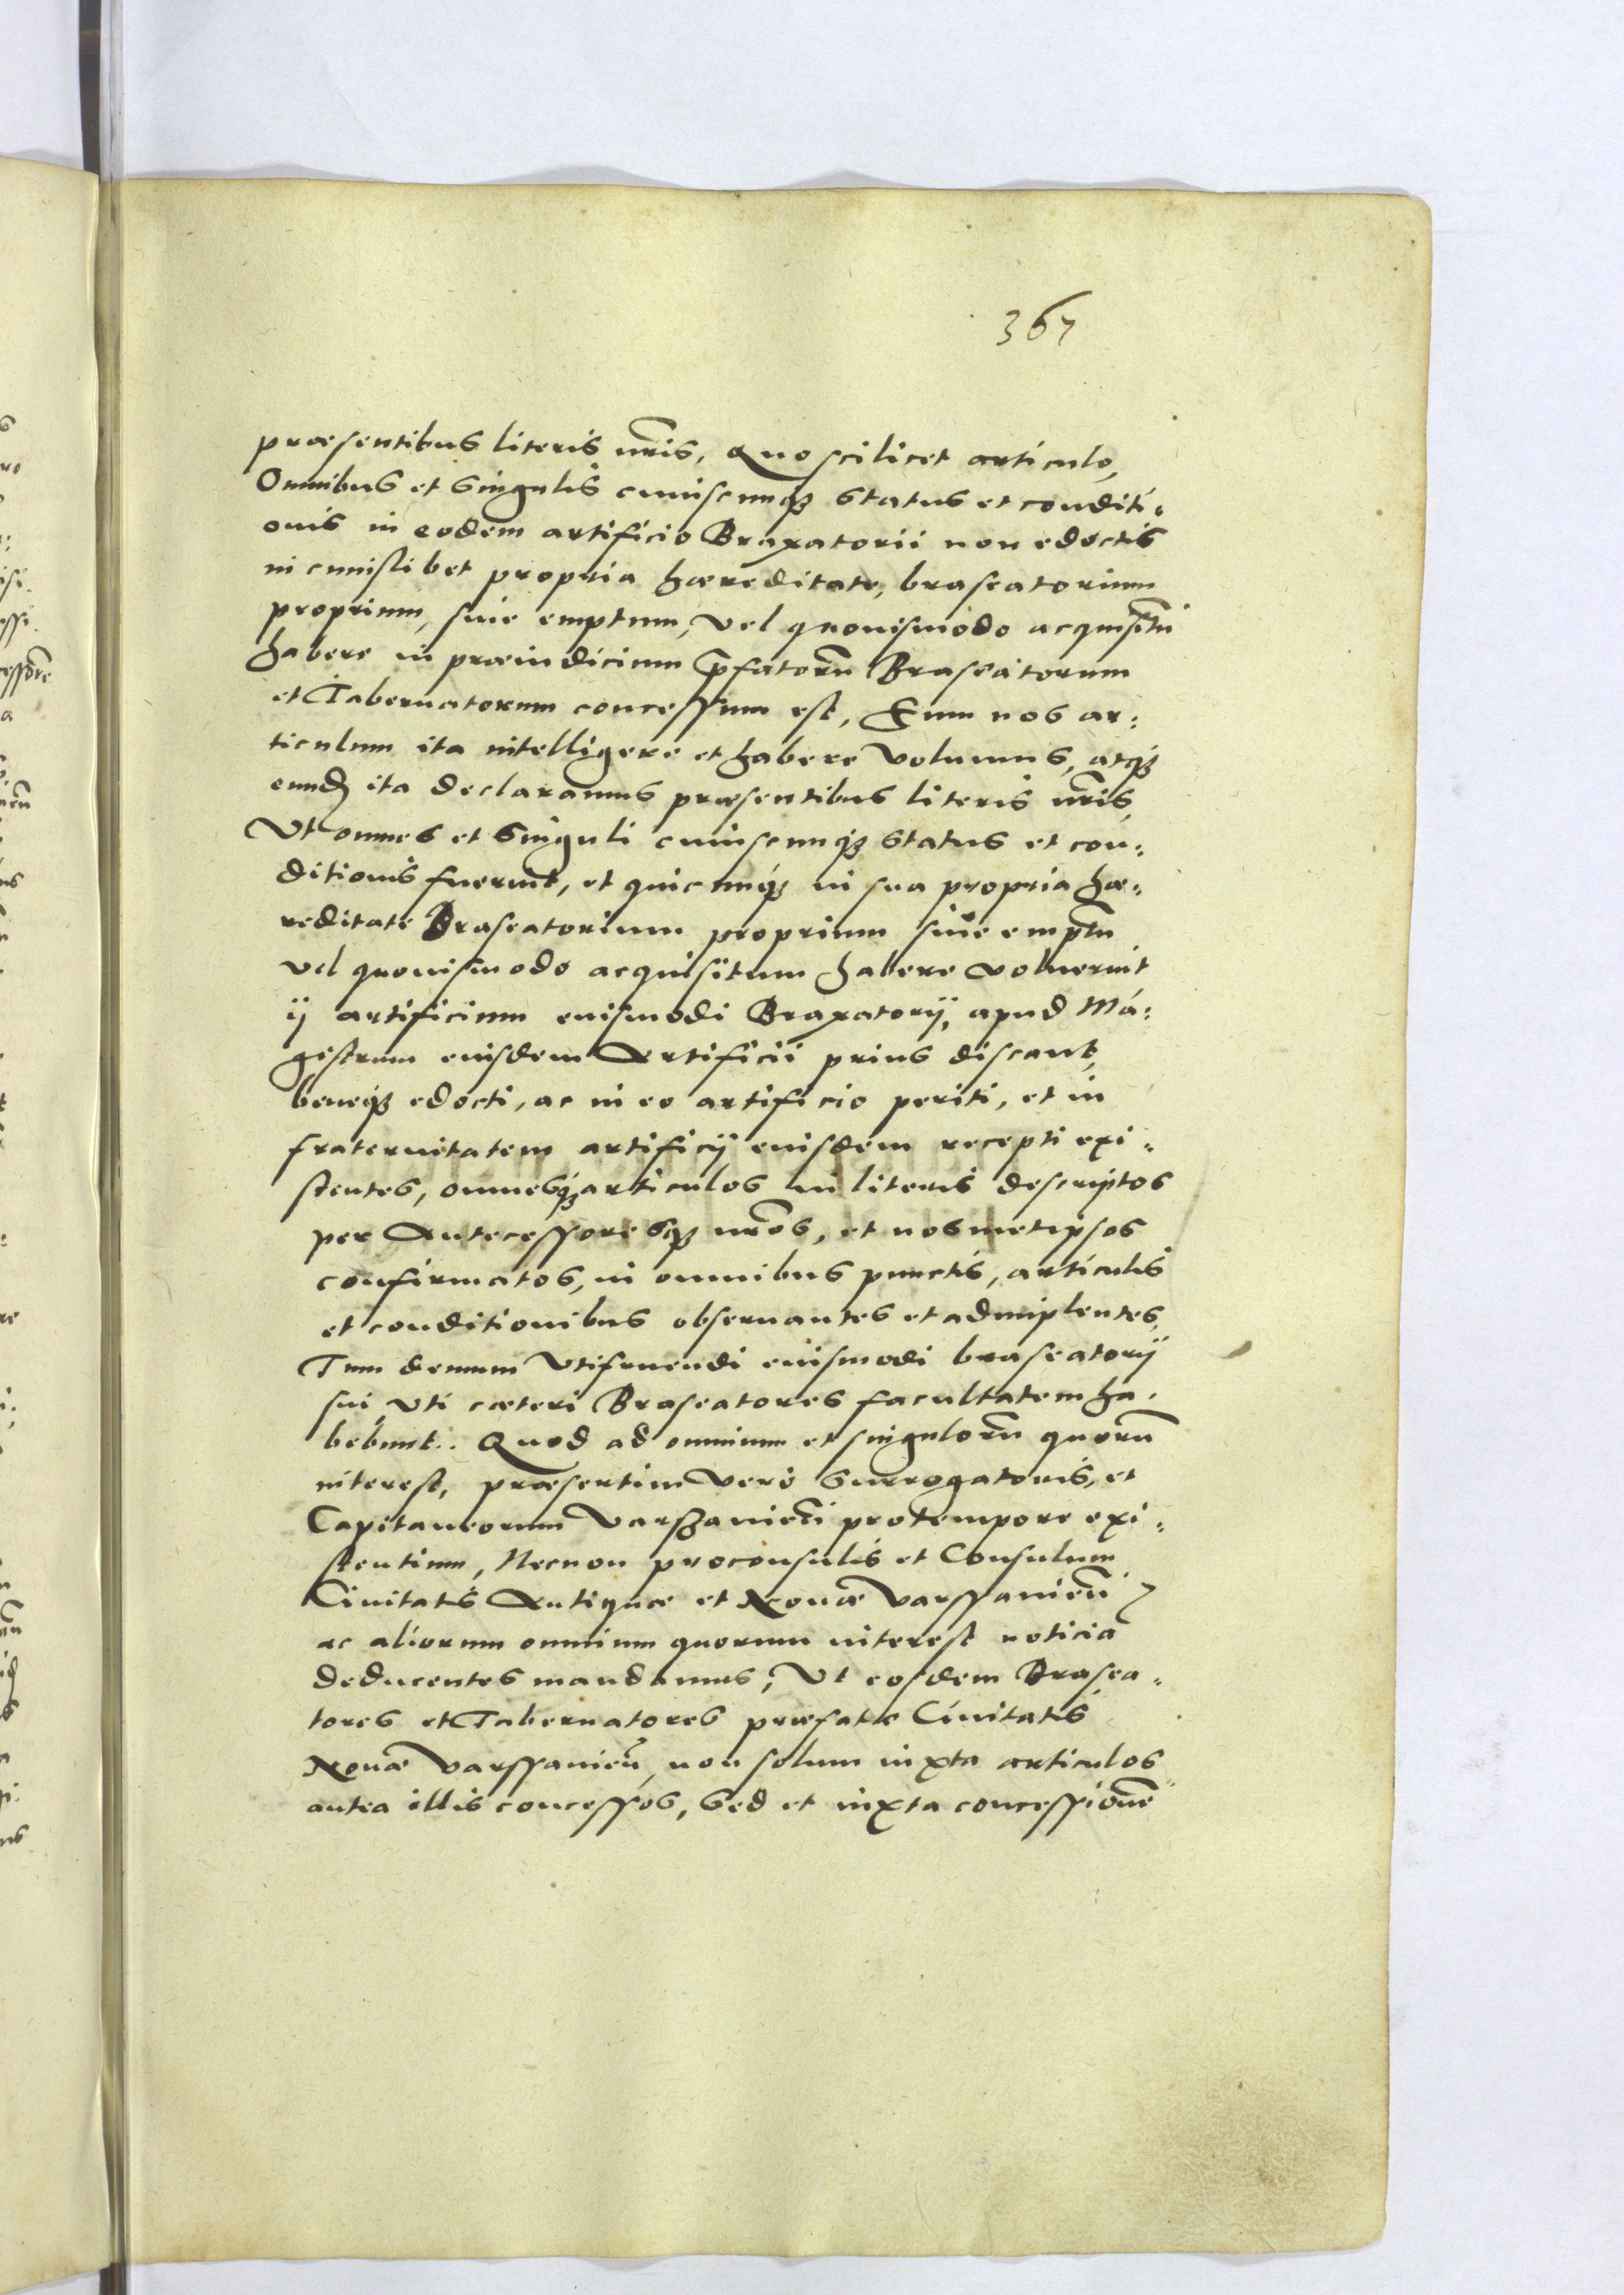 367
præsentibus literis nr̃is, Quo scilicet articulo,
Omnibus et Singulis cuiuscunqꝫ Status et conditi:
onis in eodem artificio Braxatorii non edoctis
in cuiuslibet propria hæreditate, braseatorium
proprium, siue emptum, vel quouismodo acquisitũ
habere in præiudicium p̃fatorũ Braseatorum
et Tabernatorum concessum est, Eum nos ar:
ticulum ita intelligere et habere volumus, atqꝫ
eundẽ ita declaramus præsentibus literis nr̃is,
Vt omnes et Singuli cuiuscunqꝫ Status et con:
ditionis fuerint, et quicunqꝫ in sua propria hæ:
reditate Braseatorium proprium siue emptũ
vel quouismodo acquisitum habere voluerint
ij artificium euismodi Braxatorij, apud Má:
gistrum euisdem Artificii prius discant,
beneqꝫ edocti, ac in eo artificio periti, et in
fraternitatem artificij euisdem recepti exi:
stentes, omnesqꝫ articulos in literis descriptos
per Antecessoresqꝫ nr̃os, et nosmetipsos
confirmatos, in omnibus punctis, articulis
et conditionibus obseruantes et adimplentes,
Tum demum Vtifruendi euismodi braseatorij
sui, vti cæteri Braseatores facultatem ha:
bebunt. Quod ad omnium et singulorũ quorũ
interest, præsertim vero Surrogatoris, et
Capitaneorum Varszavieñ protempore exi:
stentium, Necnon proconsulis et Consulum
Ciuitatis Antiquæ et Nouæ Varssavieñ
ac aliorum omnium quorum interest noticiã
deducentes mandamus, Vt eosdem Brasea:
tores et Tabernatores præfatæ Ciuitatis
Nouæ Varssavieñ, non solum iuxta articulos
antea illis concessos, Sed et iuxta concessionẽ